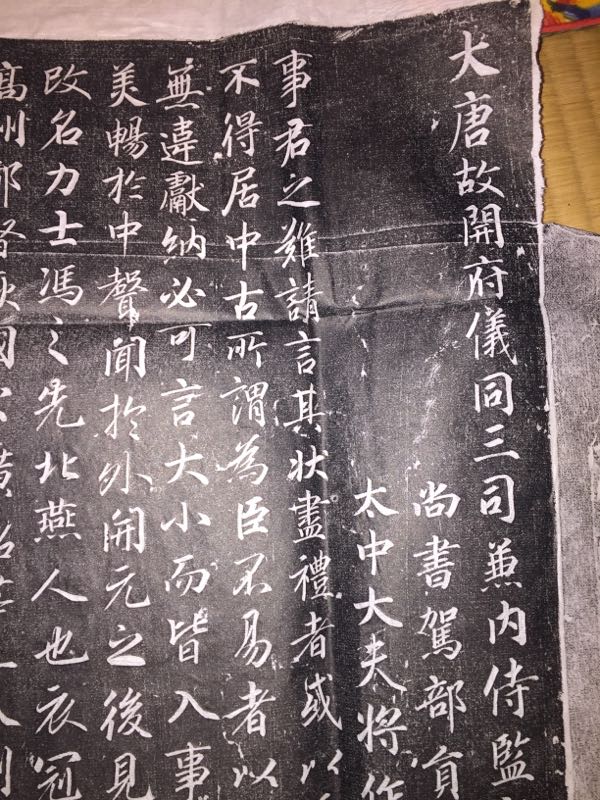 大唐故開府儀同三司兼内侍監
尚書駕部員
太中大夫將作
事君之難請言其狀盡禮者或以
不得居中古所謂為臣不易者以
無違獻納必可言大小而皆入事
美暢於中聲聞於外開元之後見
改名力士馮之先北燕人也衣冠
高州都督耿國公